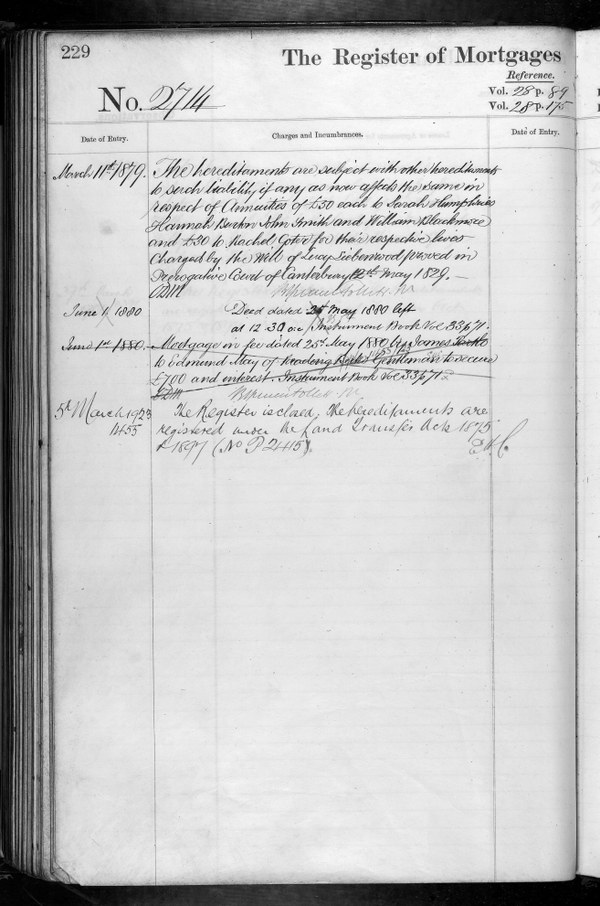 229
The Register of Mortgages
Reference.
No. 2714
Vol. 28 p. 89
Vol. 28 p. 175
Date of Entry.
Charges and Incumbrances.
Date of Entry.
March 11th 1879.
The hereditaments are subject with other hereditaments
to such liability if any as now affects the same in
respect of Annuities of £50 each to Sarah Humphries
Hannah Burton John Smith and William Blackmore
and £30 to Rachel for their respective lives
Charged by the Will of Lucy proved in
Prerogative Court of Canterbury 12th May 1829.
June 1 1880
Deed dated 25 May 1880 left
at 12.30 Instrument Book Vol 33, 671.
June 1st 1880.
Mortgage in fee dated 25th May 1880 by James
to Edmund May of Reading Gentleman to secure
£700 and interest. Instrument Book Vol 33, 671
5th March 1923
1455
The Register is closed, the hereditaments are
registered under the Land Transfer Acts 1875
& 1897 (No P 2415).